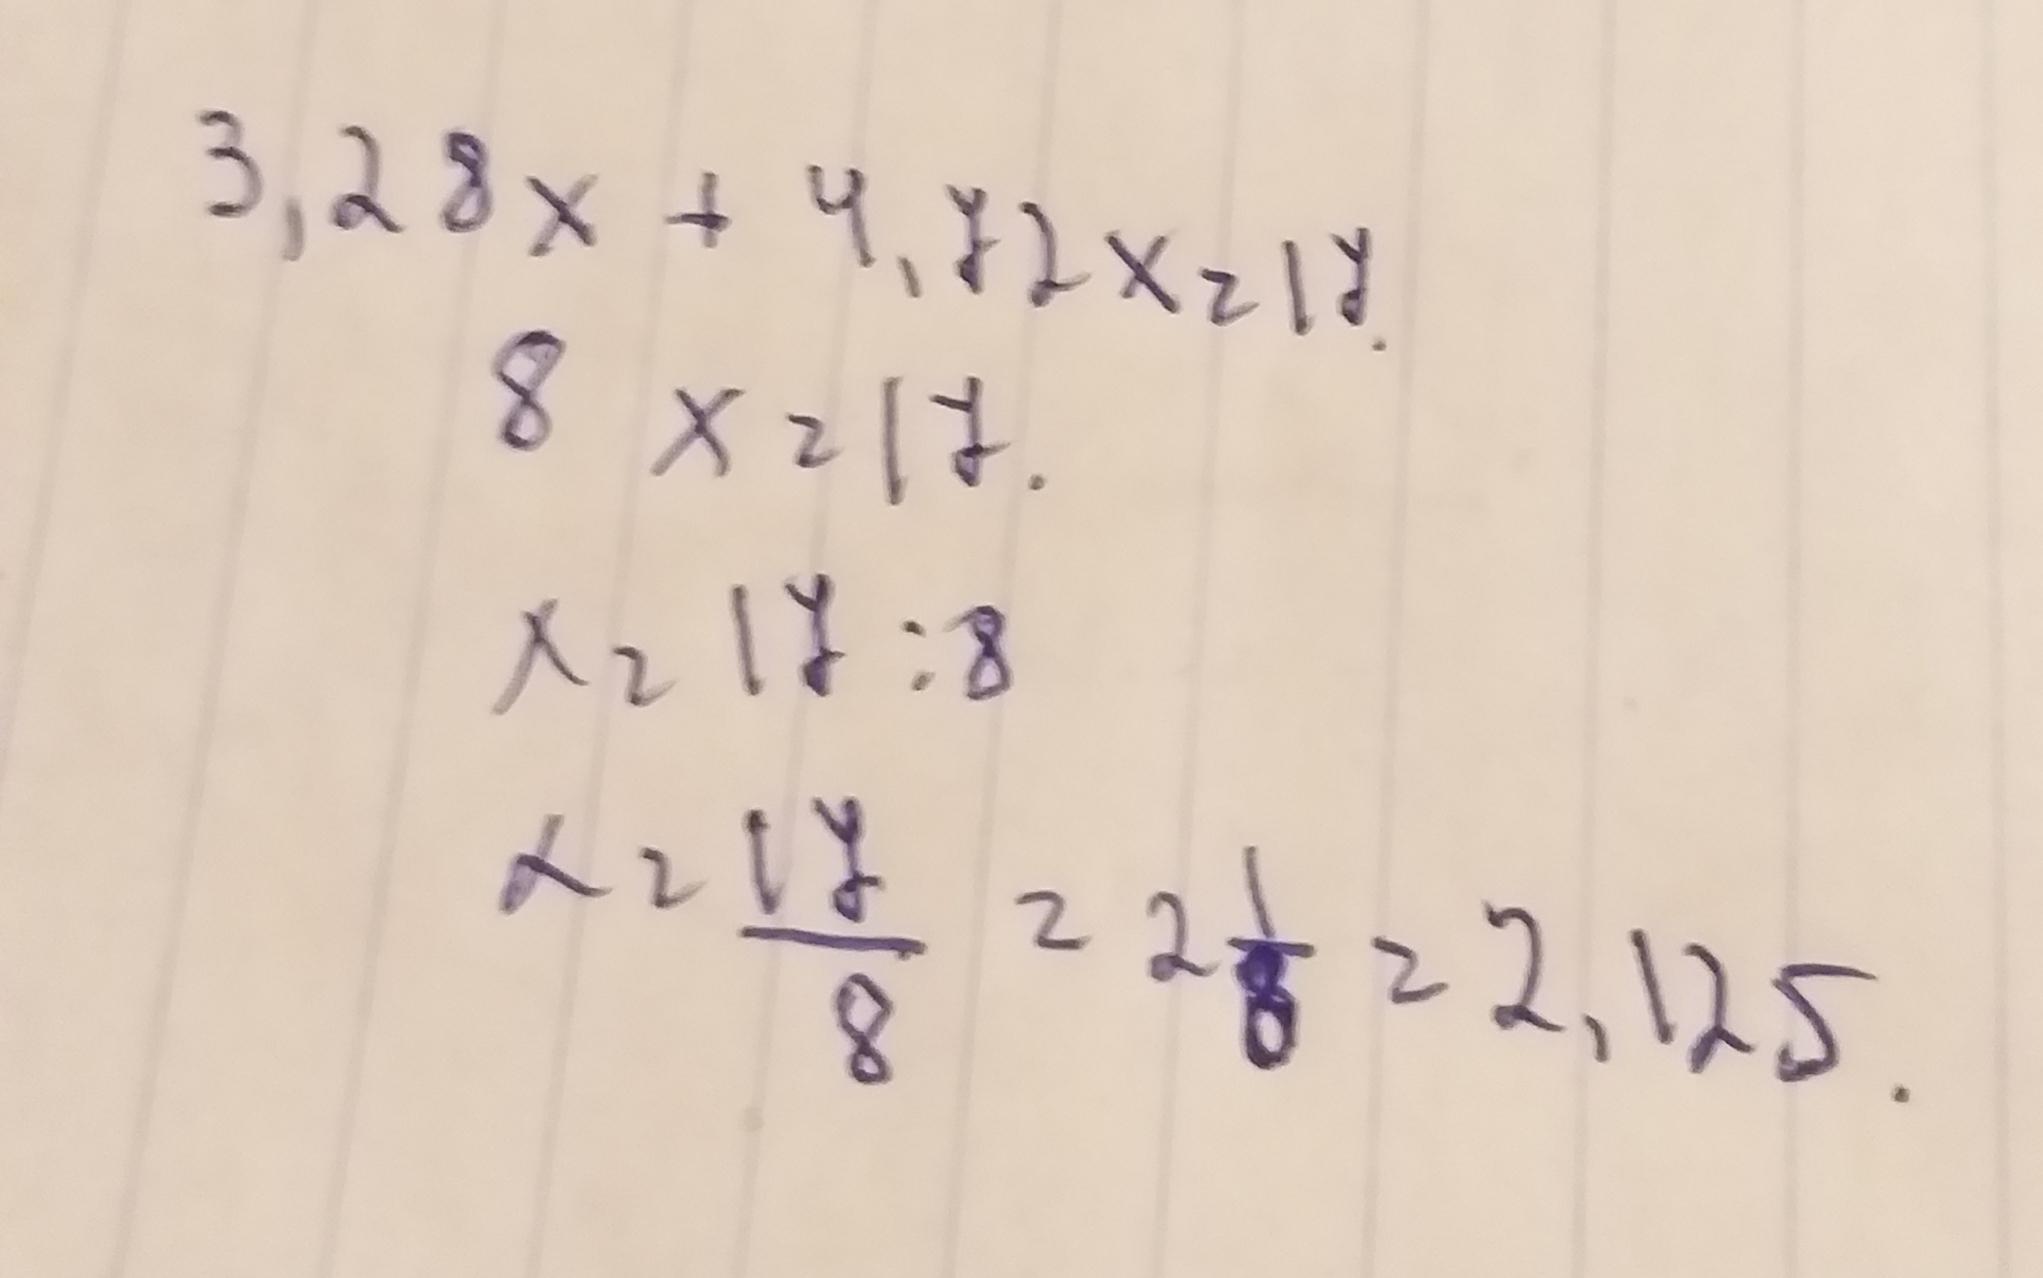 3,28x + 4,72x = 17.
8 x = 17.
x = 17 : 8
x = 17/8 = 2 1/8 = 2,125.